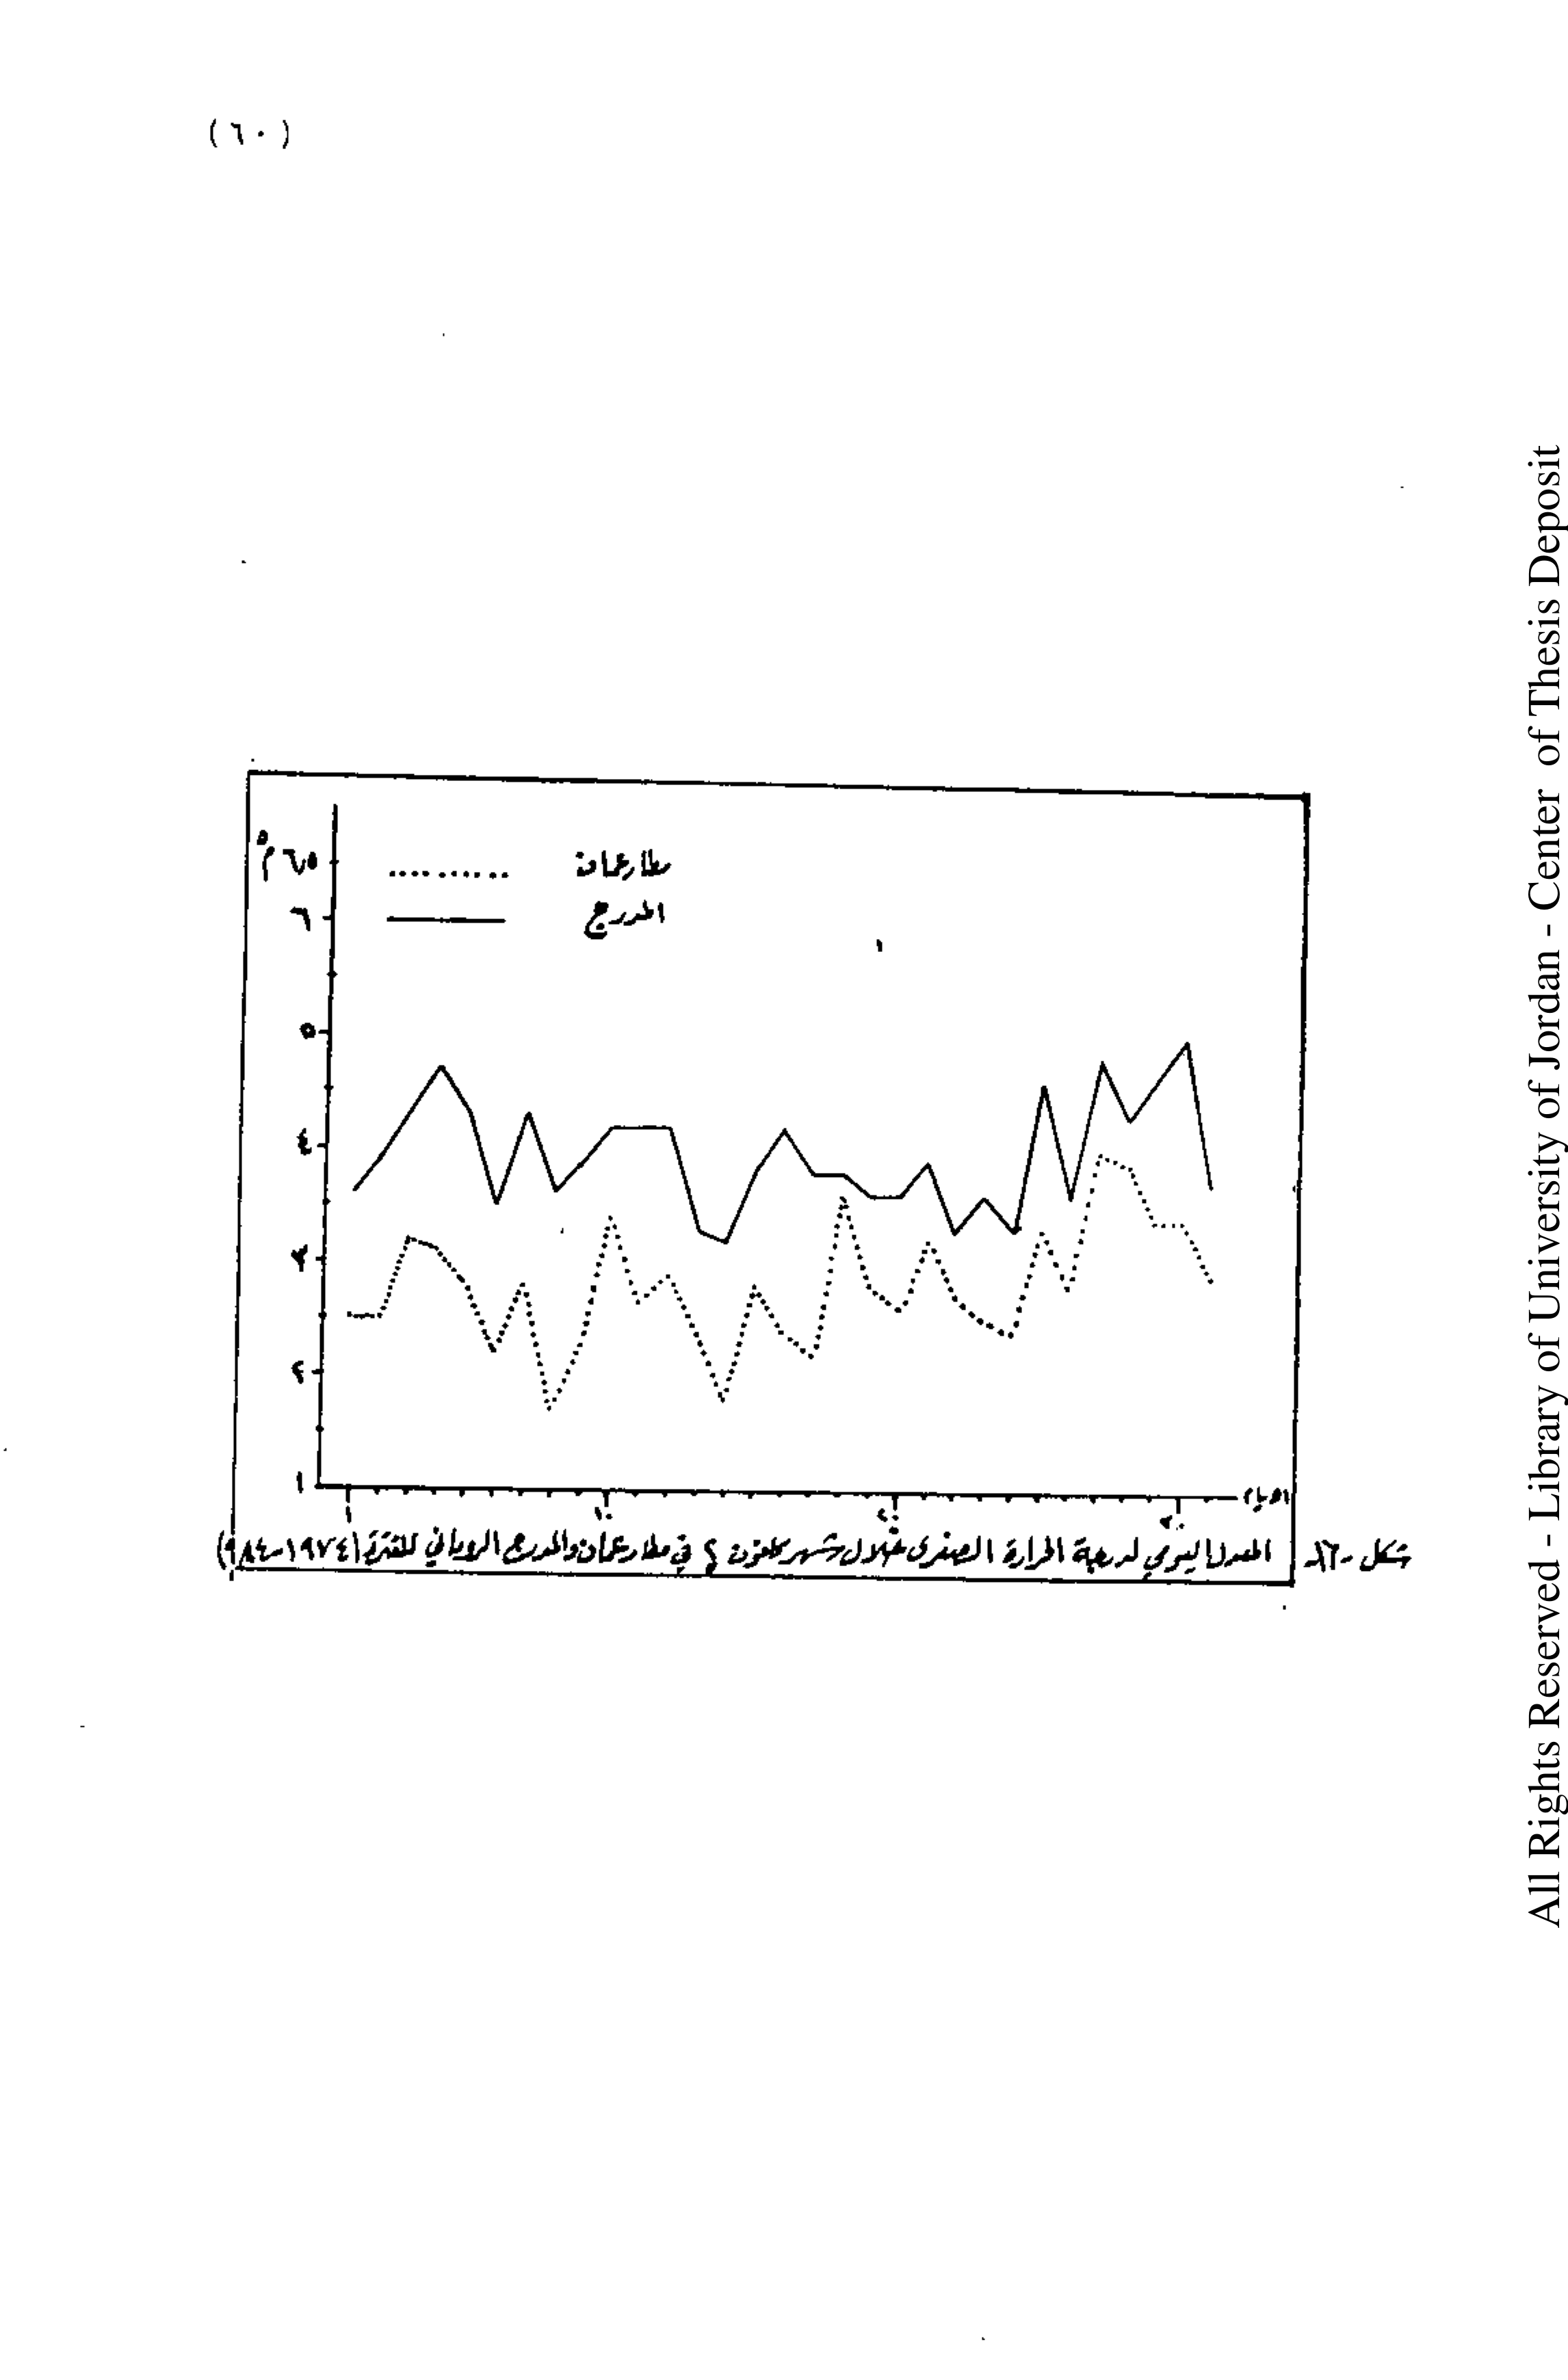 (٦٠)
٦٫٥ م°
مطار عمان
٦
المدرج
٥
٤
٣
٢
١
١
١٠
٢٠
٣٠
الايام
شكل - المعدل اليومي لدرجة الحرارة الصغرى خلال شهر كانون ٢ في مطار عمان والمدرج الروماني للفترة (١٩٧٤-١٩٨٤)
All Rights Reserved - Library of University of Jordan - Center of Thesis Deposit